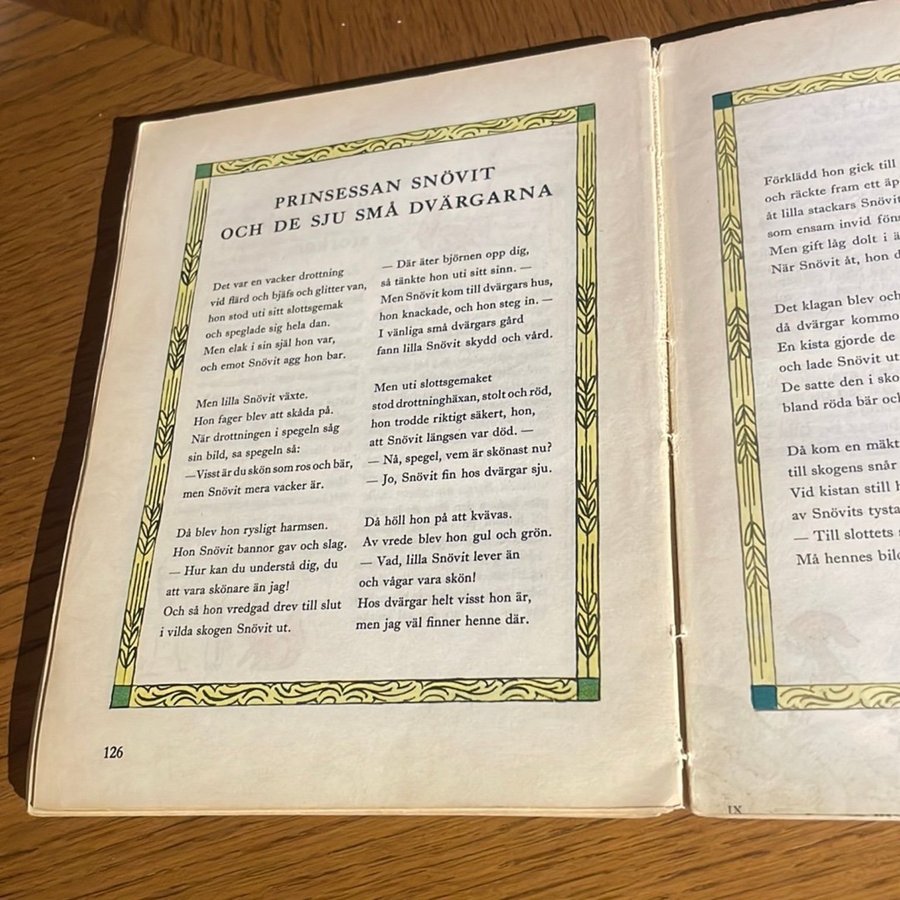 PRINSESSAN SNÖVIT
OCH DE SJU SMÅ DVÄRGARNA
Det var en vacker drottning
vid flärd och bjäfs och glitter van,
hon stod uti sitt slottsgemak
och speglade sig hela dan.
Men elak i sin själ hon var,
och emot Snövit agg hon bar.
Men lilla Snövit växte.
Hon fager blev att skåda på.
När drottningen i spegeln såg
sin bild, sa spegeln så:
—Visst är du skön som ros och bär,
men Snövit mera vacker är.
Då blev hon rysligt harmsen.
Hon Snövit bannor gav och slag.
— Hur kan du understå dig, du
att vara skönare än jag!
Och så hon vredgad drev till slut
i vilda skogen Snövit ut.
— Där äter björnen opp dig,
så tänkte hon uti sitt sinn. —
Men Snövit kom till dvärgars hus,
hon knackade, och hon steg in. —
I vänliga små dvärgars gård
fann lilla Snövit skydd och vård.
Men uti slottsgemaket
stod drottninghäxan, stolt och röd,
hon trodde riktigt säkert, hon,
att Snövit längsen var död. —
— Nå, spegel, vem är skönast nu?
— Jo, Snövit fin hos dvärgar sju.
Då höll hon på att kvävas.
Av vrede blev hon gul och grön.
— Vad, lilla Snövit lever än
och vågar vara skön!
Hos dvärgar helt visst hon är,
men jag väl finner henne där.
126
Förklädd hon gick till
och räckte fram ett
åt lilla stackars Snövit
som ensam invid
Men gift låg dolt i
När Snövit åt, hon
Det klagan blev och
då dvärgar
En kista gjorde de
och lade Snövit
De satte den i
bland röda bär och
Då kom en
till skogens snår
Vid kistan still
av Snövits
— Till slottets
Må hennes
IX